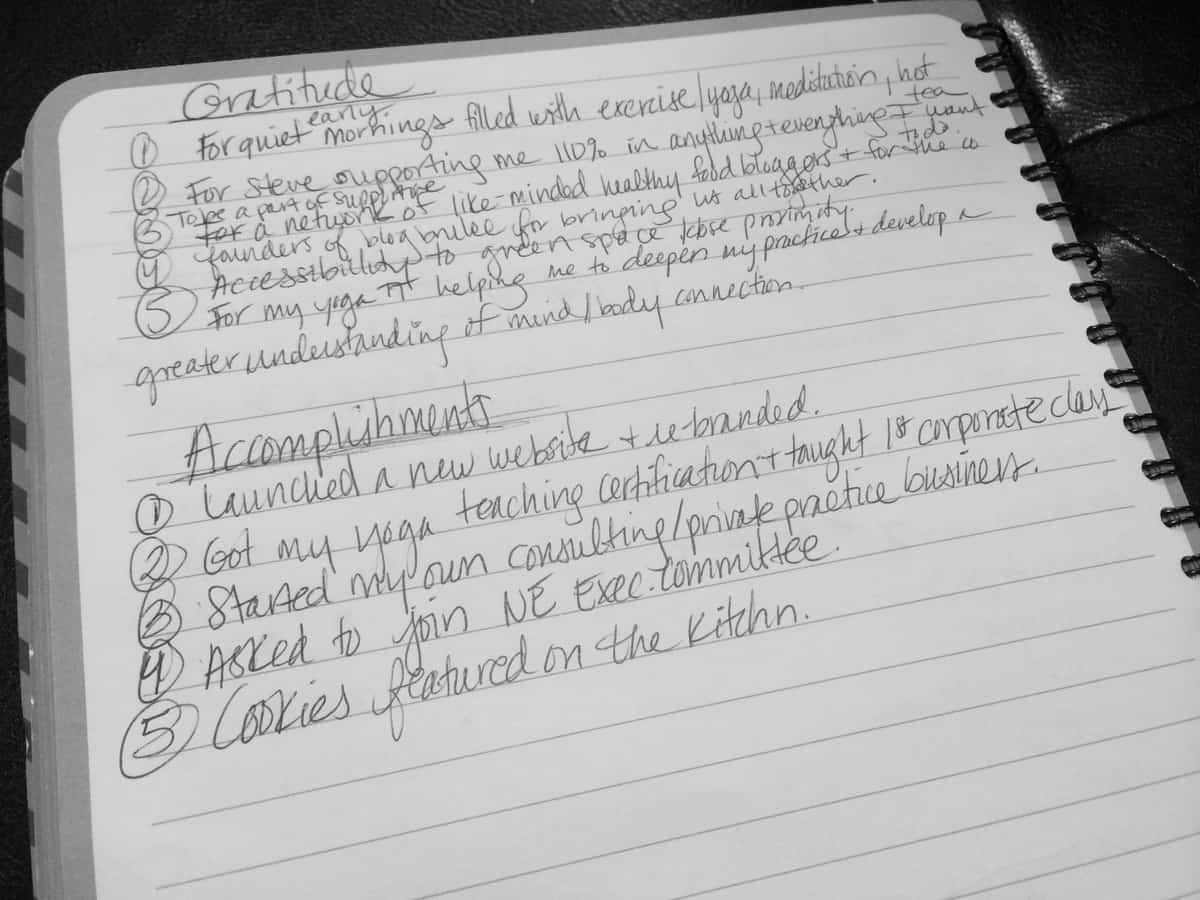 Gratitude
① For quiet early mornings filled with exercise/yoga, meditation, hot tea
② For Steve supporting me 110% in anything + everything I want to do.
③ To be a part of supportive For a network of like-minded healthy food bloggers + for the co
founders of blog brulee for bringing us all together.
④ Accessibility to green space close proximity.
⑤ For my yoga TT helping me to deepen my practice + develop a
greater understanding of mind/body connection.
Accomplishments
① Launched a new website + re-branded.
② Got my yoga teaching certification + taught 1st corporate class
③ Started my own consulting/private practice business.
④ Asked to join NE Exec. Committee.
⑤ Cookies featured on the Kitchn.